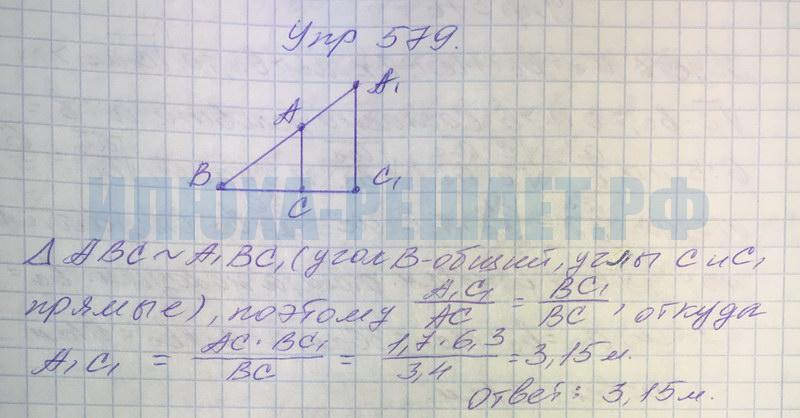 Упр 579.
A₁
A
B
C₁
C
ИЛЮХА-РЕШАЕТ.РФ
Δ ABC ~ A₁BC₁ (угол B-общий, углы C и C₁
прямые), поэтому A₁C₁/AC = BC₁/BC, откуда
A₁C₁ = AC·BC₁/BC = 1,7·6,3/3,4 = 3,15 м.
Ответ: 3,15 м.